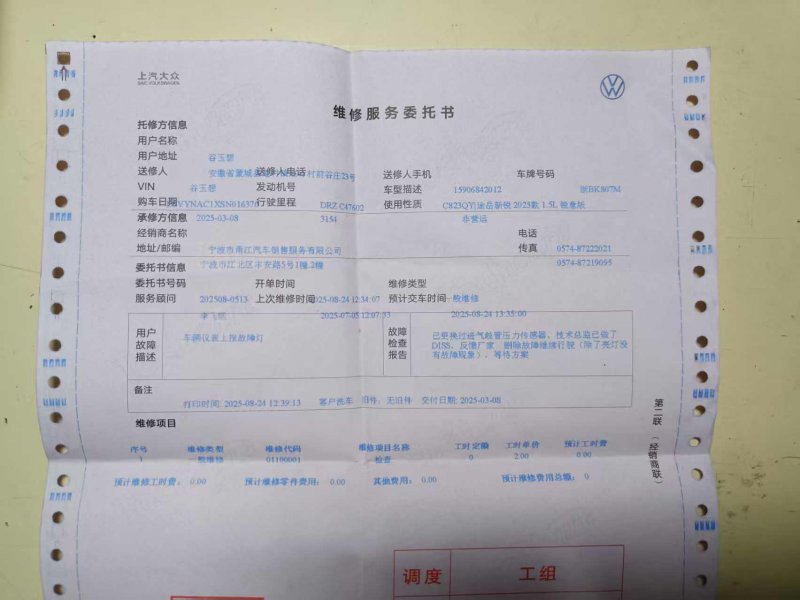 上汽大众
SAIC VOLKSWAGEN
维修服务委托书
托修方信息
用户名称
用户地址 谷玉想
送修人 安徽省蒙城县 送修人电话 村前谷庄23号 送修人手机 车牌号码
VIN 谷玉想 发动机号 车型描述 15906842012 浙BK807M
购车日期 VYNAC1XSN016376 行驶里程 DRZ C47602 使用性质 C823QY|途岳新锐 2025款 1.5L 锐意版
承修方信息 2025-03-08 3154 非营运
经销商名称 电话
地址/邮编 宁波市甬江汽车销售服务有限公司 传真 0574-87222021
委托书信息 宁波市江北区丰安路5号1幢,2幢 0574-87219095
委托书号码 开单时间 维修类型
服务顾问 202508-0513 上次维修时间 2025-08-24 12:34:07 预计交车时间 一般维修
李飞 2025-07-05 12:07:33 2025-08-24 13:35:00
用户故障描述 车辆仪表上报故障灯
故障检查报告 已更换过进气歧管压力传感器、技术总监已做了
DISS、反馈厂家、删除故障继续行驶（除了亮灯没
有故障现象）、等待方案
备注
打印时间: 2025-08-24 12:39:13 客户洗车 旧件：无旧件 交付日期: 2025-03-08
维修项目
序号 维修类型 维修代码 维修项目名称 工时定额 工时单价 预计工时费
1 一般维修 01100001 检查 0 2.00 0
预计维修工时费： 0.00 预计维修零件费用： 0.00 其他费用： 0.00 预计维修费用总额： 0
第二联（经销商联）
调度 工组